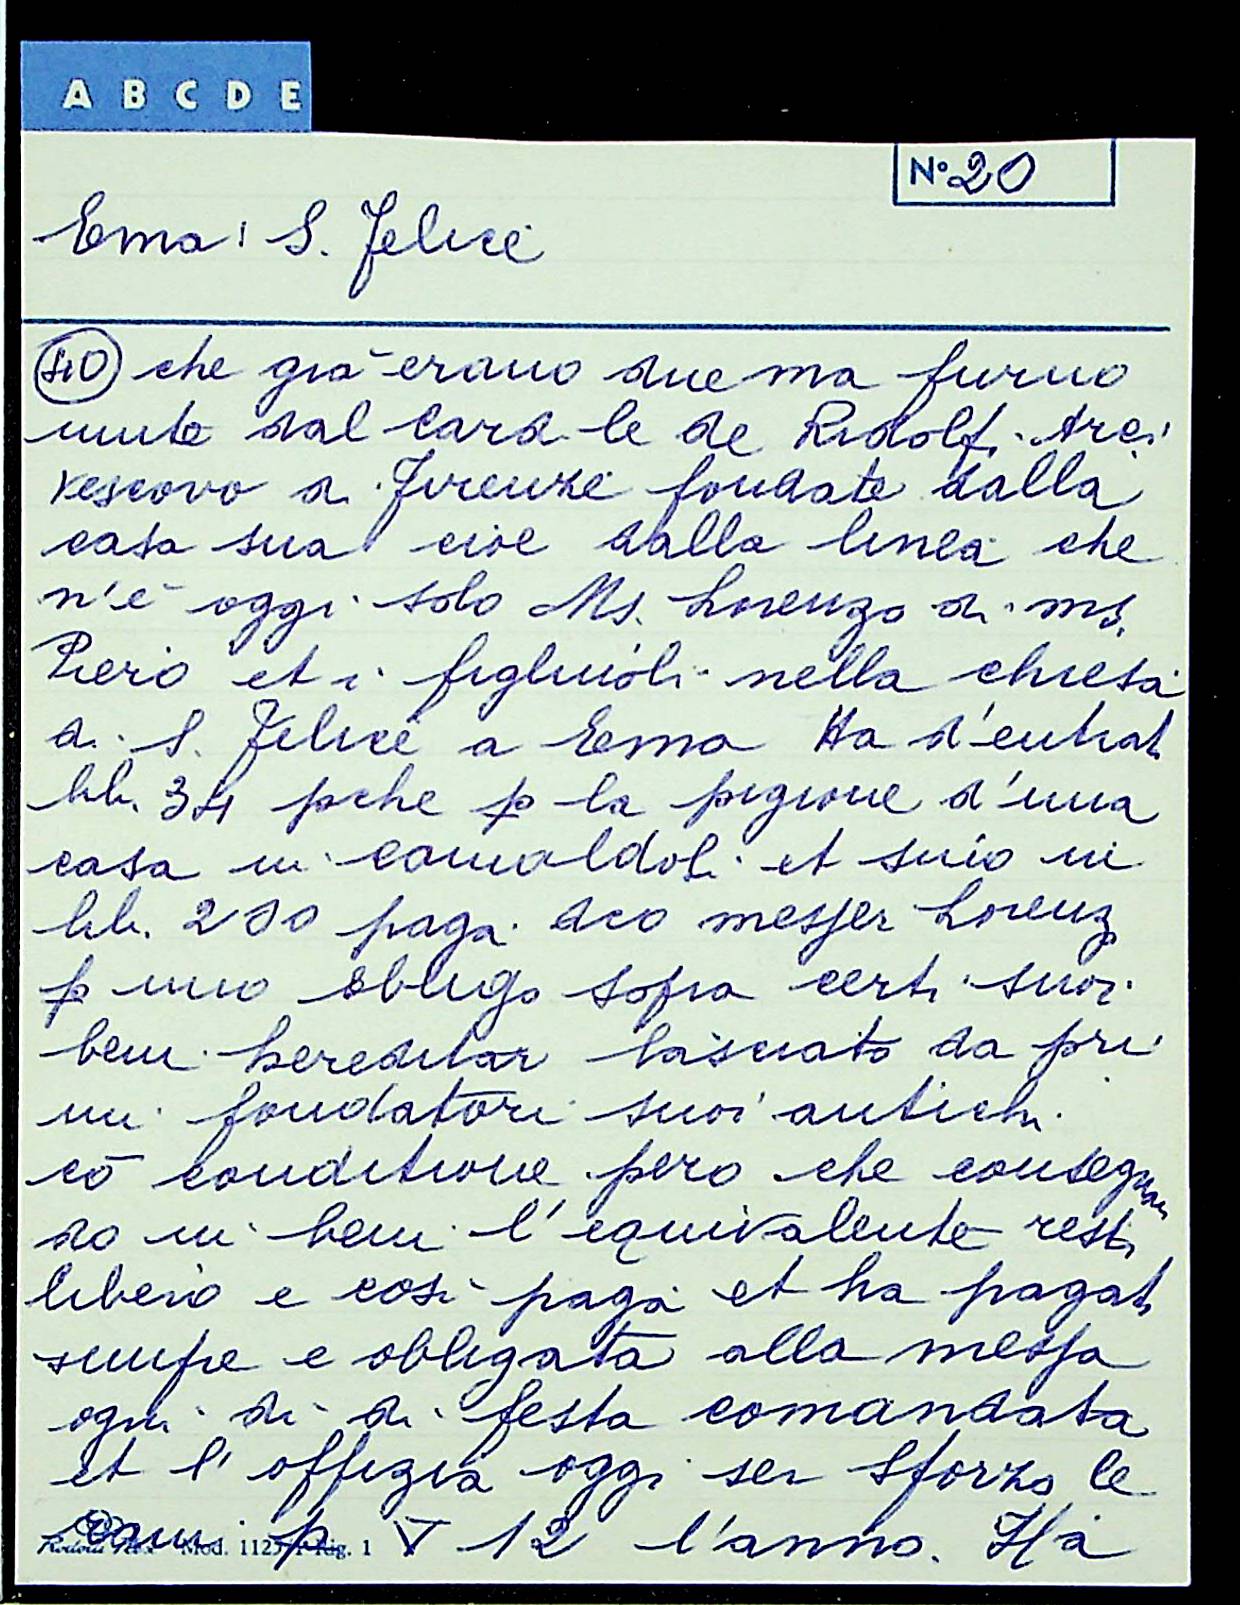 A B C D E
N° 20
Ema: S. Felice
che già erano due ma furno
unite dal Card.le de Ridolfi Arci
vescovo di Firenze fondate dalla
casa sua cioè dalla linea che
n'è oggi solo Ms. Lorenzo di ms.
Piero et i figliuoli nella chiesa
di S. Felice a Ema Ha d'entrat
lib. 34 pche p la pigione d'una
casa in Camaldoli et suio in
lib. 200 paga dco messer Lorenz
p uno obligo sopra certi suoi
beni hereditar lasciato da pri
mi fondatori suoi antichi
cō conditione pero che consegnan
do in beni l'equivalente resti
libero e così paga et ha pagat
sempe e obligata alla messa
ogni dì di festa comandata
et l' offizia oggi ser Sforzo le
p ∇ 12 l'anno. Ha
Mod. 1125 Rig. 1